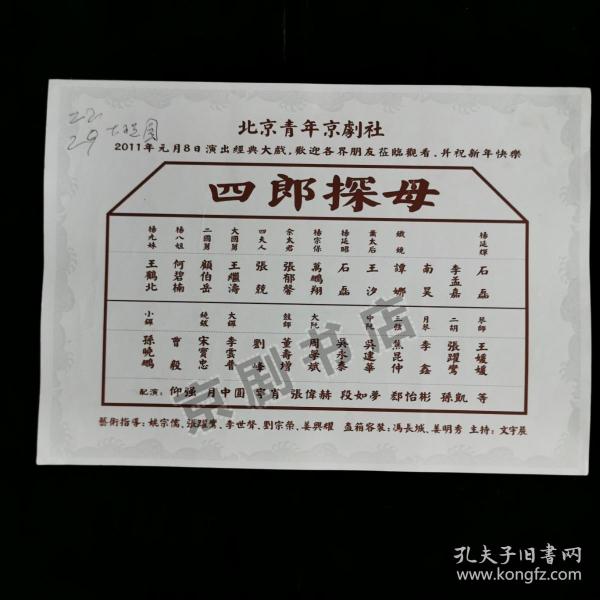 22
29
北京青年京劇社
2011年元月8日演出經典大戲,歡迎各界朋友莅臨觀看,并祝新年快樂
四郎探母
楊延輝 石磊 李孟嘉 南昊
鐵鏡 譚娜
蕭太后 王汐
楊延昭 石磊
楊宗保 萬鵬翔
佘太君 張郁馨
四夫人 張競
大國舅 王繼濤
二國舅 顧伯岳
楊八姐 何碧楠
楊九妹 王鶴北
琴師 王媛媛
二胡 張躍鸞
月琴 李鑫
三弦 焦昆仲
中阮 吳建華 吳永泰
大阮 周學斌
鼓師 董壽增 劉峰
大鑼 李雲普
鐃鈸 宋寶忠 曹毅
小鑼 孫曉鵬
配演:仰强 月中圓 寧肖 張偉赫 段如夢 郄怡彬 孫凱 等
藝術指導:姚宗儒、張躍鸞、李世聲、劉宗榮、姜興耀 盔箱容裝:馮長城、姜明秀 主持:文宇晨
京剧书店
孔夫子旧书网
www.kongfz.com